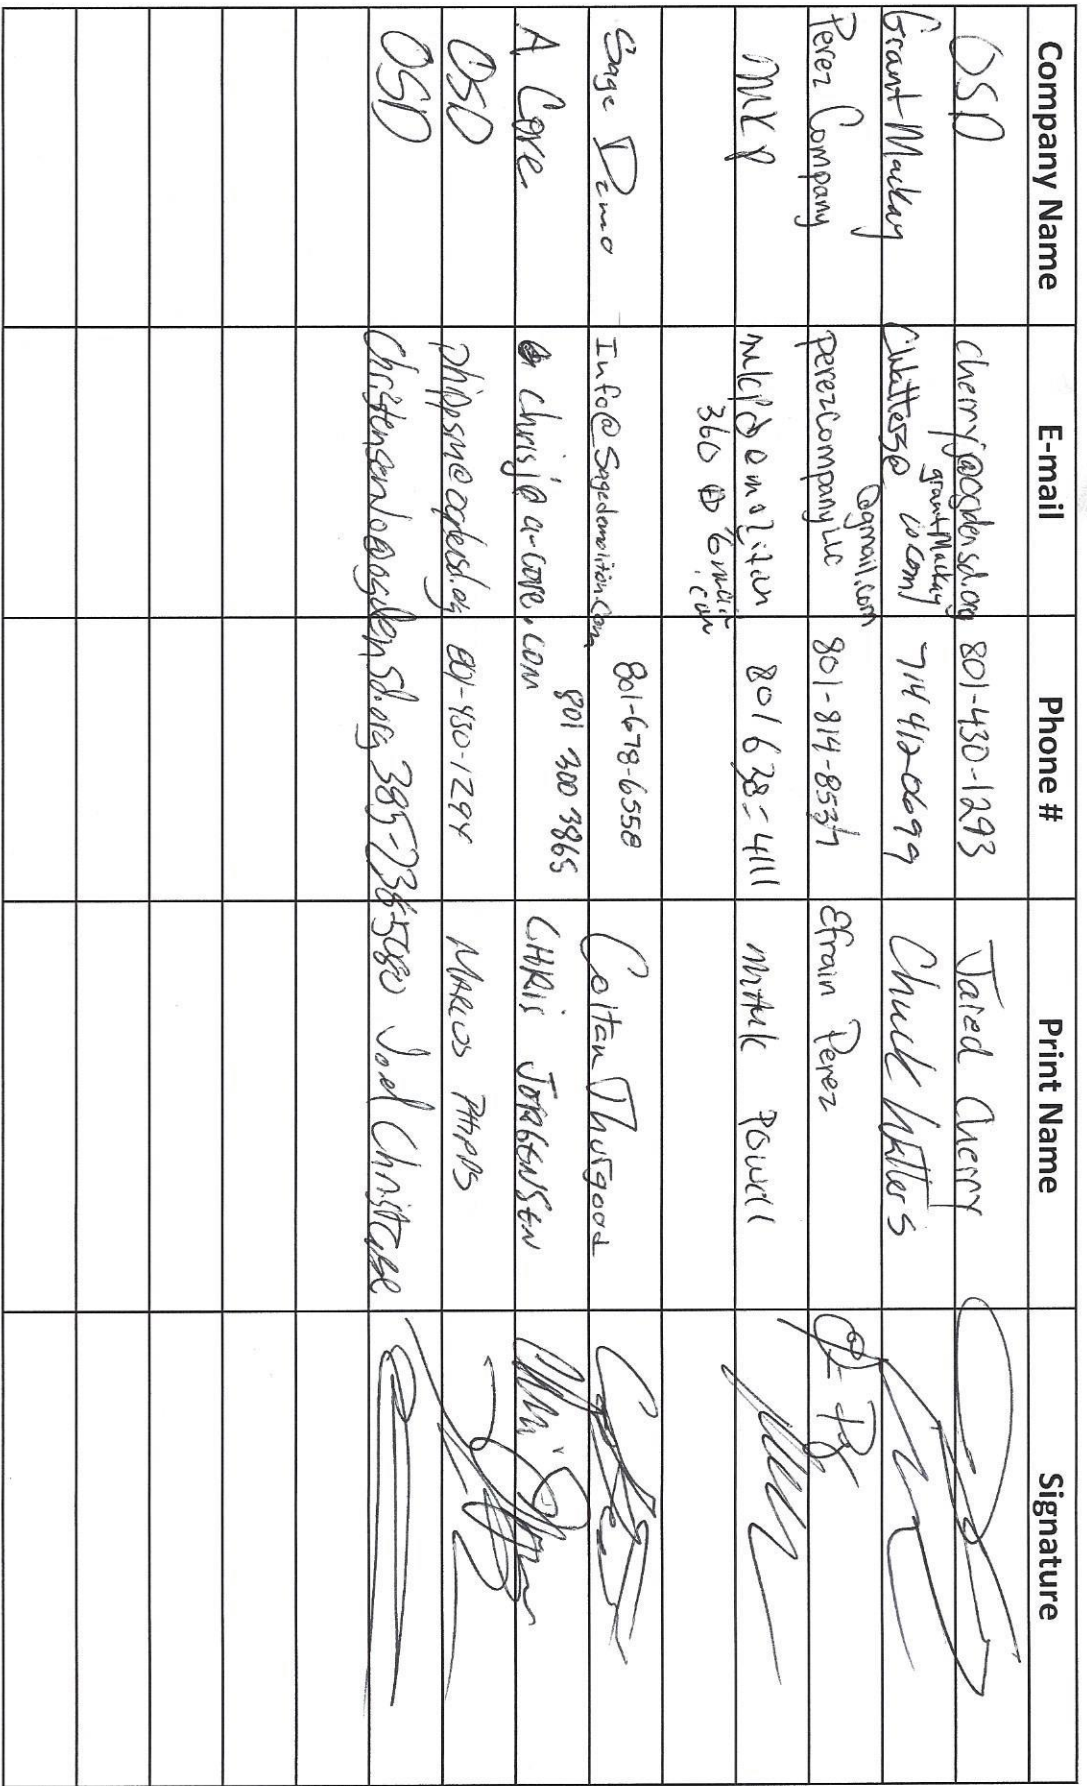 Company Name E-mail Phone # Print Name Signature
OSD cherryj@ogdensd.org 801-430-1293 Jared Cherry
Grant Mackay CWatters@ grantMackay co.com 714 412 0699 Chuck Watters
Perez Company perezcompanyLLC @gmail.com 801-814-8537 Efrain Perez
MKP mkpdemolition 801 628-4111 mark Powell
360 @
Sage Demo Info@Sagedemolition.com 801-678-6558 Coltan Thurgood
A Core chrisj@a-core.com 801 300 3865 CHRIS JORGENSEN
OSD phippsm@ogdensd.org 801-430-1294 MARCUS PHIPPS
OSD Christensenjo@ogdensd.org Joel